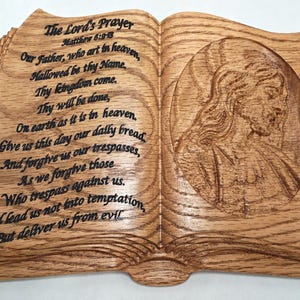 The Lord's Prayer
Matthew 6:9-13
Our Father, who art in heaven,
Hallowed be thy Name.
Thy kingdom come.
Thy will be done,
On earth as it is in heaven.
Give us this day our daily bread.
And forgive us our trespasses,
As we forgive those
Who trespass against us.
lead us not into temptation,
But deliver us from evil.